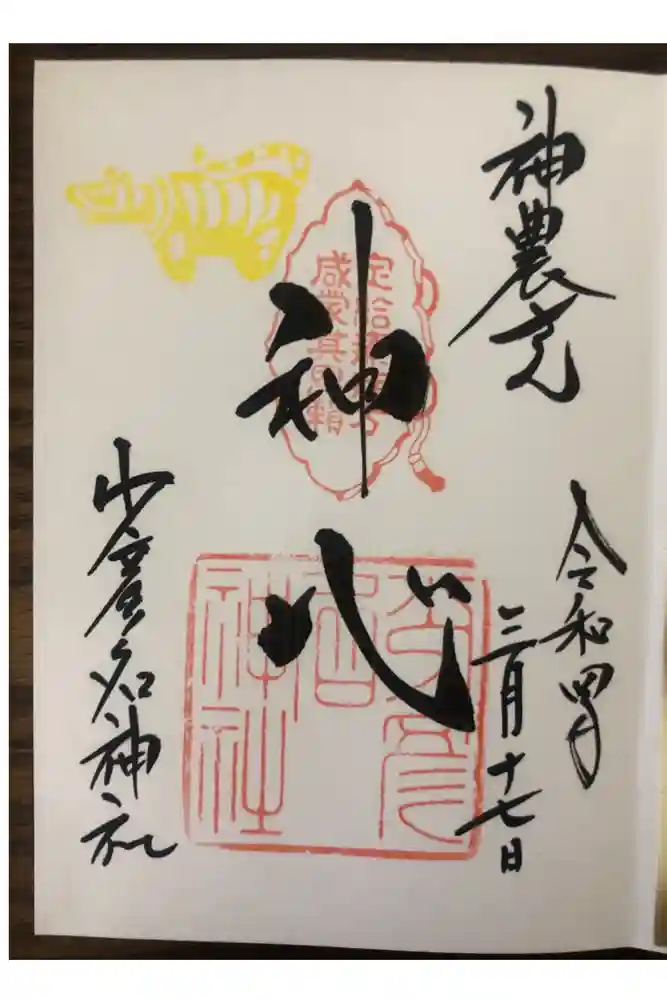 神農
令和四年
三月十七日
神
少彦名神社
定給療病方
咸蒙其恩頼
少彦
名
神社